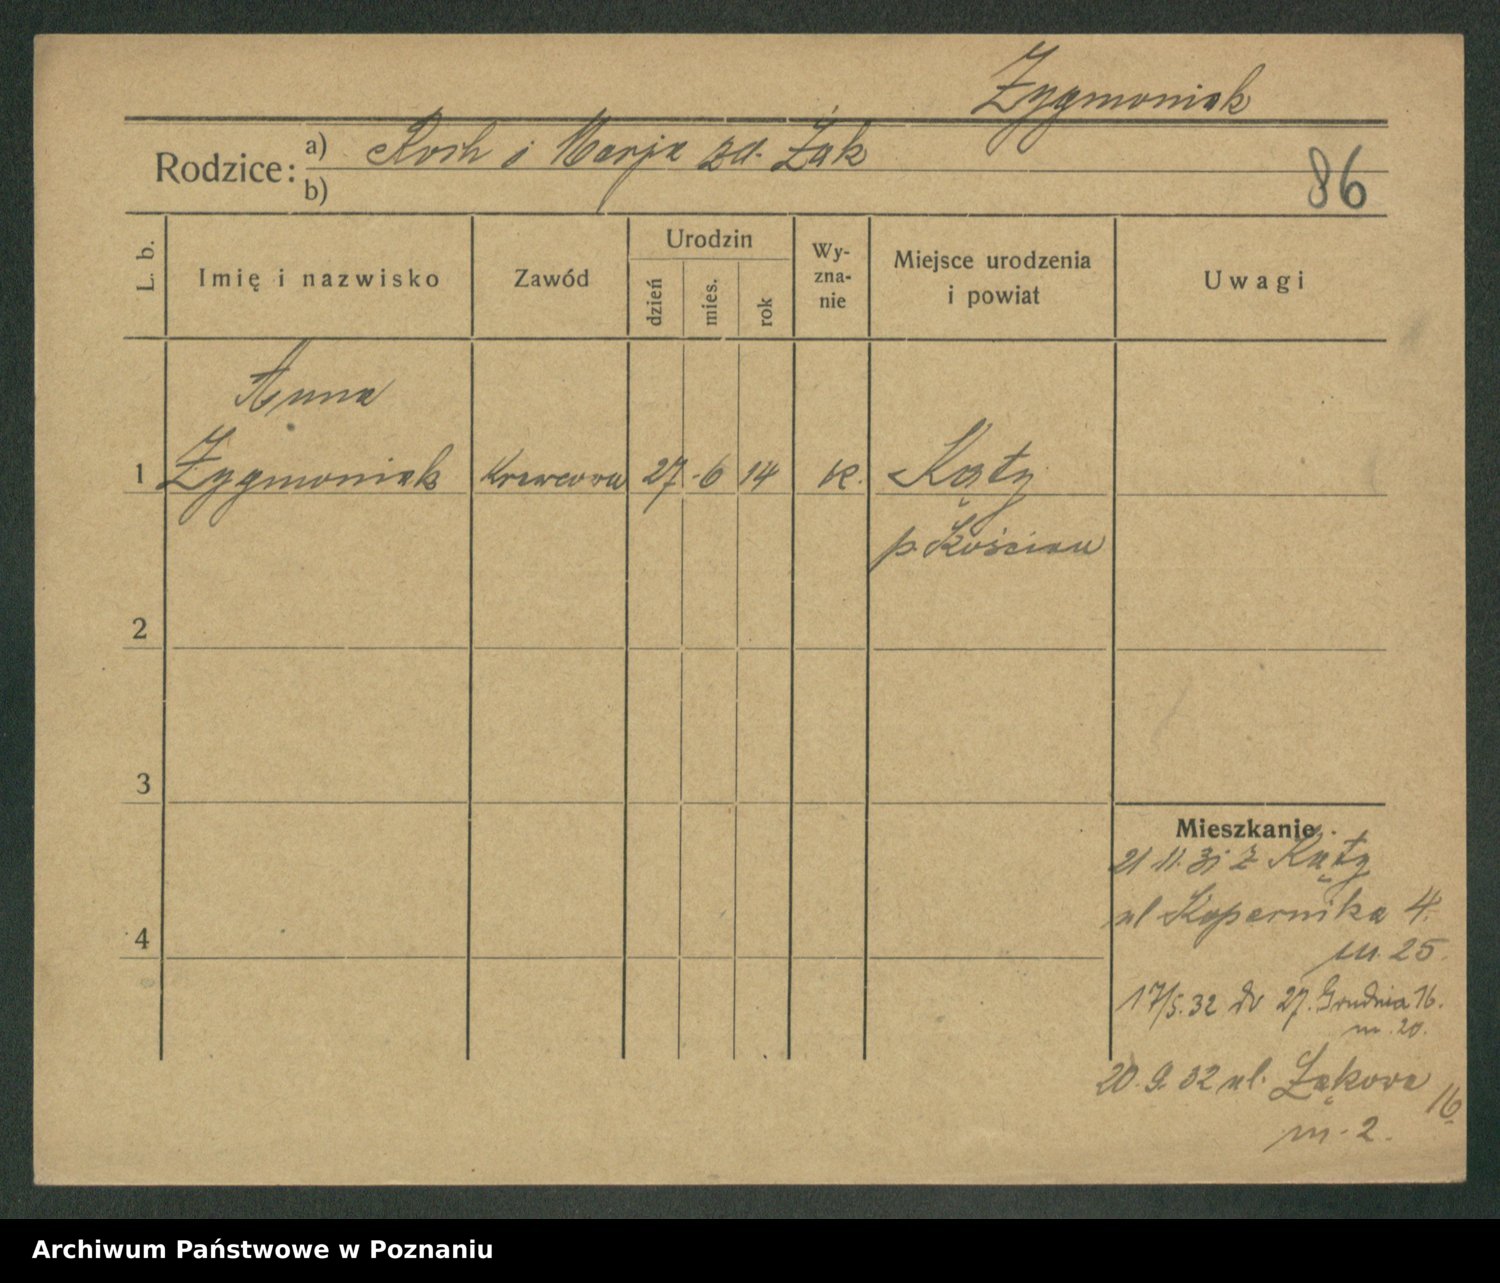 Zygmoniak
Rodzice: a) Roch i Marja zd. Żak
b)
86
L. b.
Imię i nazwisko
Zawód
Urodzin
dzień
mies.
rok
Wy-
zna-
nie
Miejsce urodzenia
i powiat
Uwagi
Anna
1 Zygmoniak Krawcowa 27 -6 14 k. Kąty
p. Kościan
2
3
4
Mieszkanie
21.11.31 z Kąty
ul Kopernika 4.
m. 25.
17/5.32 do 27. Grudnia 16.
m. 20.
20.9.32 ul. Łąkowa 16
m. 2.
Archiwum Państwowe w Poznaniu